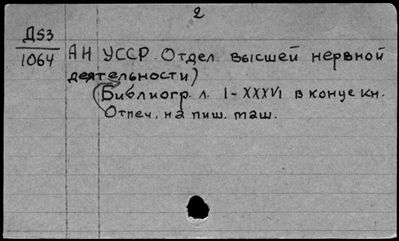 2
Д53
1064
АН УССР. Отдел высшей нервной
деятельности)
(Библиогр. л. I-XXXVI в конце кн.
Отпеч. на пиш. маш.